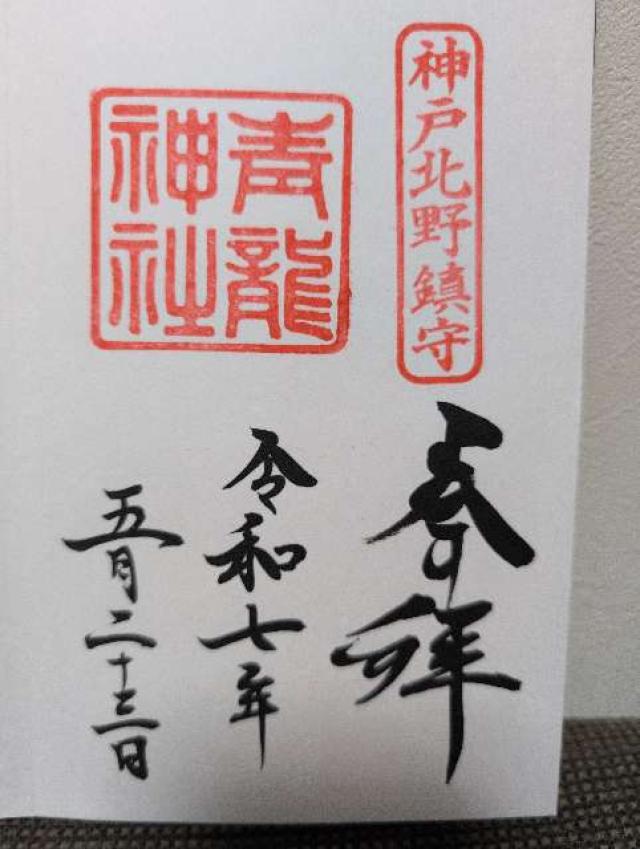 神戸北野鎮守
奉拝
青龍
神社
令和七年
五月二十三日